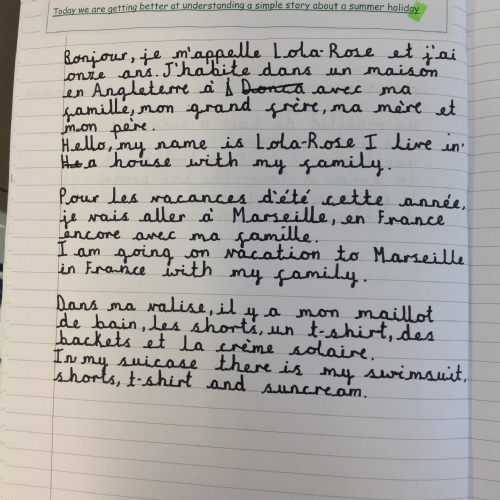 Today we are getting better at understanding a simple story about a summer holiday
Bonjour, je m'appelle Lola-Rose et j'ai
onze ans. J'habite dans un maison
en Angleterre à avec ma
famille, mon grand frère, ma mère et
mon père.
Hello, my name is Lola-Rose I live in
a house with my family.
Pour les vacances d'été cette année,
je vais aller à Marseille, en France
encore avec ma famille.
I am going on vacation to Marseille
in France with my family.
Dans ma valise, il y a mon maillot
de bain, les shorts, un t-shirt, des
backets et la crème solaire.
In my suicase there is my swimsuit,
shorts, t-shirt and suncream.